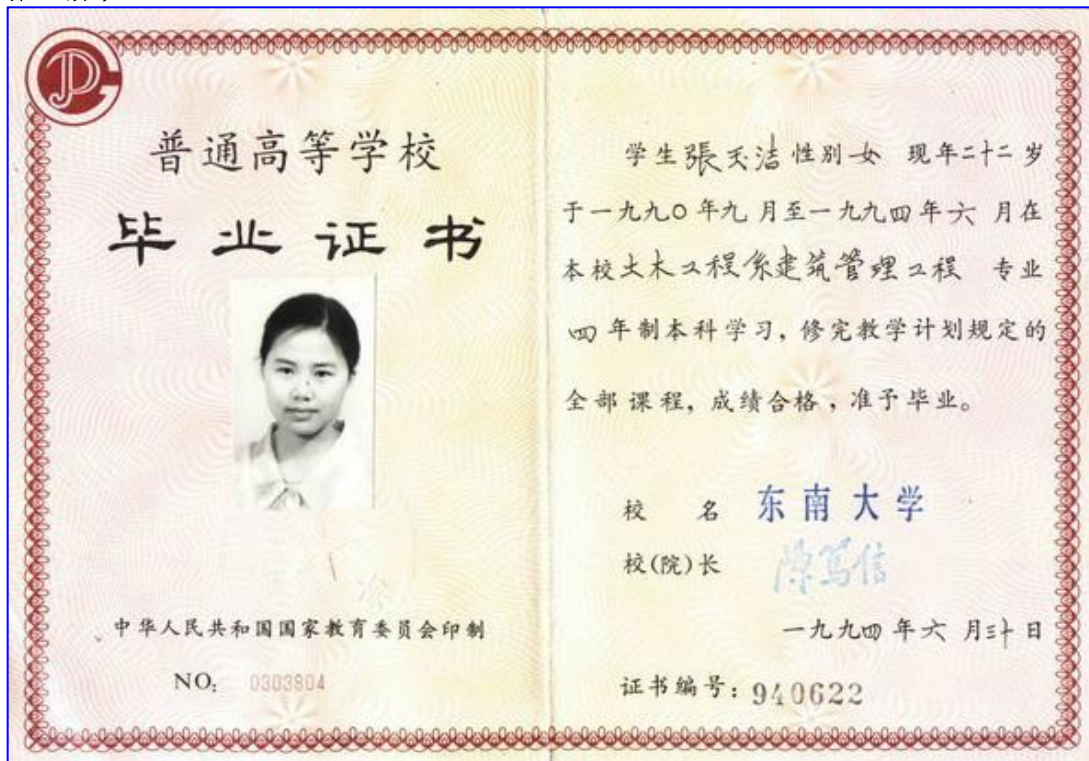 普通高等学校
毕业证书
中华人民共和国国家教育委员会印制
NO: 0303804
学生張 洁性别女 现年二十二岁
于一九九〇年九月至一九九四年六月在
本校土木工程系建筑管理工程 专业
四年制本科学习,修完教学计划规定的
全部课程,成绩合格,准予毕业。
校 名 东南大学
校(院)长 陈笃信
一九九四年六月三十日
证书编号:940622